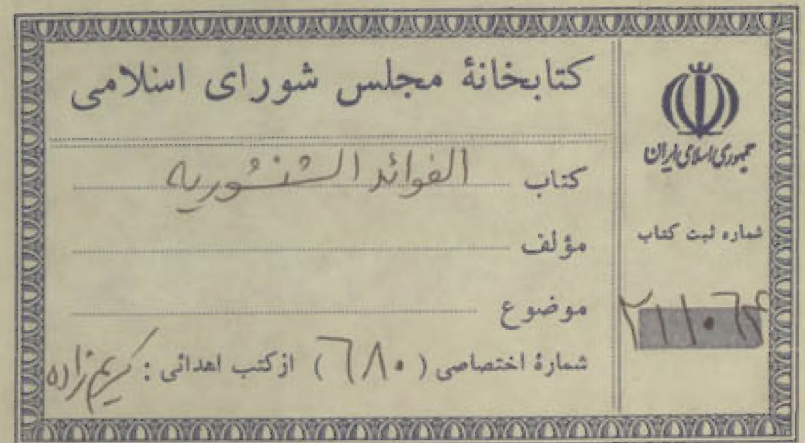 کتابخانهٔ مجلس شورای اسلامی
کتاب الفوائد الشنشوریه
مؤلف
موضوع
شمارهٔ اختصاصی ( ٦٨٠ ) از کتب اهدائی : کریم‌زاده
جمهوری اسلامی ایران
شماره ثبت کتاب
٢١١٠٦٤